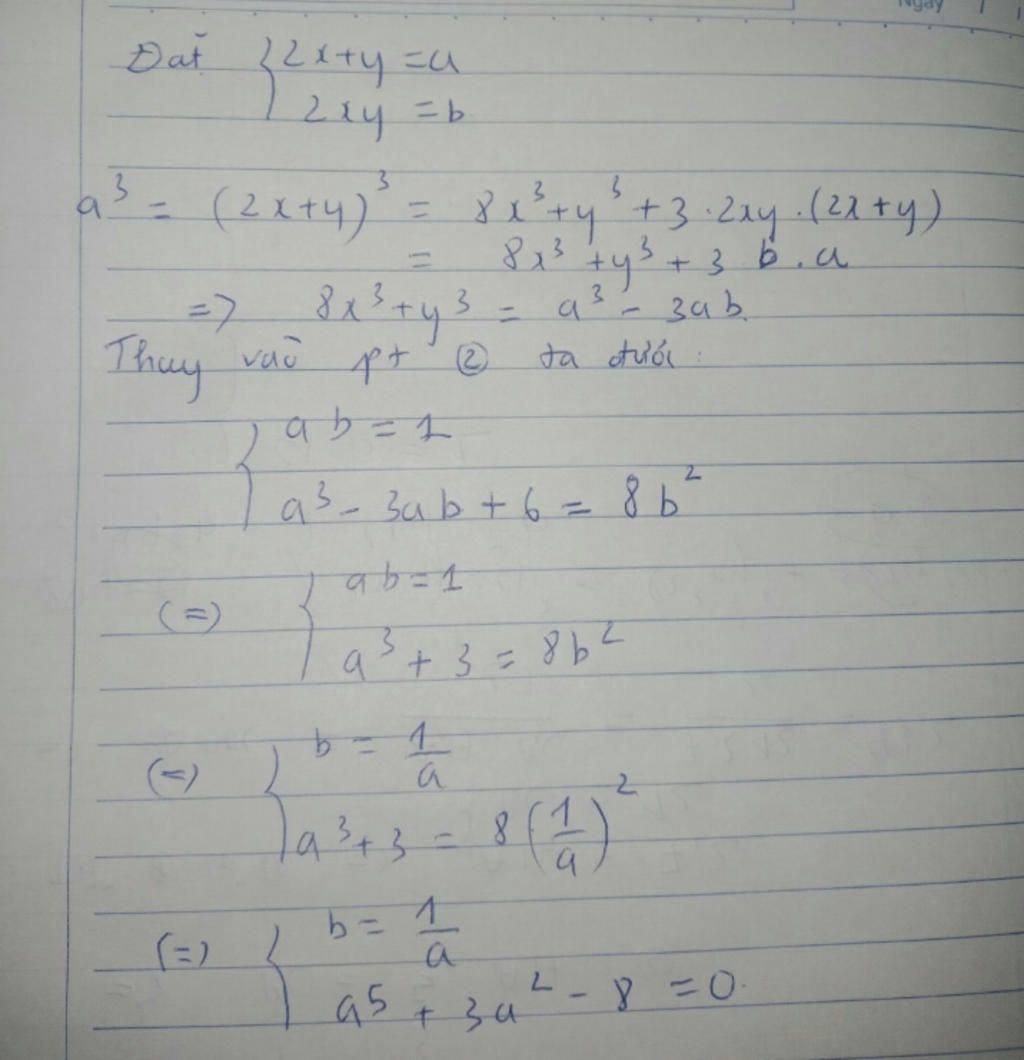 Ngày
Đặt { 2x+y = a
2xy = b
a³ = (2x+y)³ = 8x³+y³+3·2xy.(2x+y)
= 8x³+y³+3 b.a
=> 8x³+y³ = a³ - 3ab.
Thay vào pt ② ta được:
{ ab = 1
a³ - 3ab + 6 = 8b²
(=) { ab = 1
a³ + 3 = 8b²
(=) { b = 1/a
a³ + 3 = 8(1/a)²
(=) { b = 1/a
a⁵ + 3a² - 8 = 0.